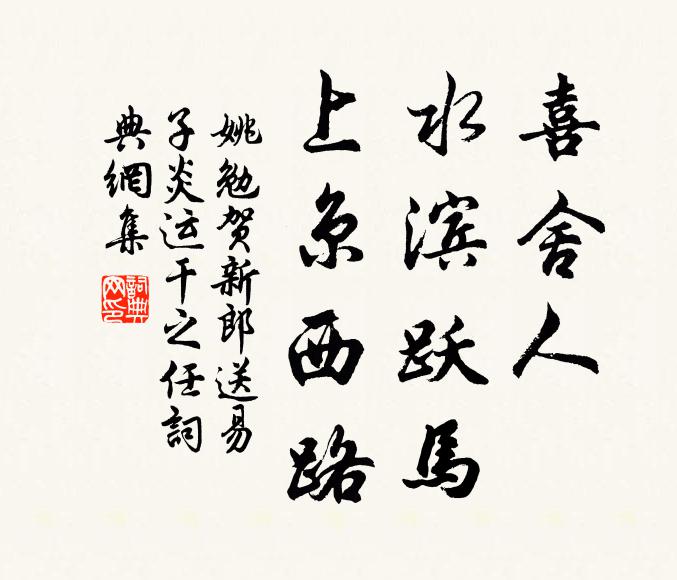 喜舍人
水滨跃马
上京西路
姚勉贺新郎送易
子炎运干之任詞
典網集
詞典网印